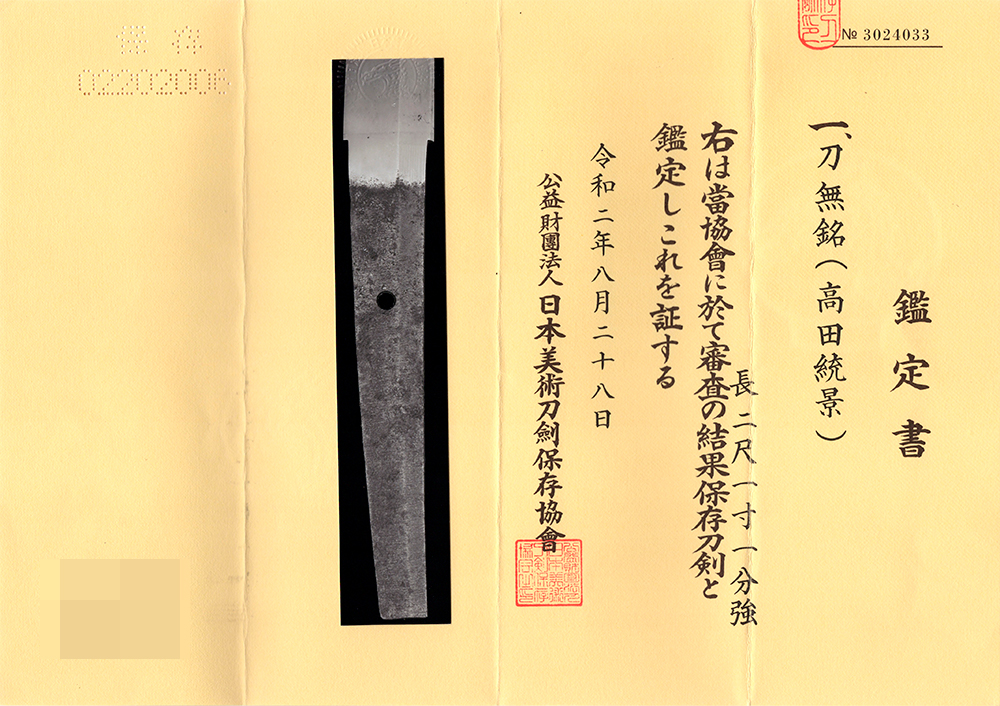 № 3024033
鑑定書
一、刀 無銘(高田統景)
長 二尺一寸一分強
右は當協會に於て審査の結果保存刀剣と
鑑定しこれを証する
令和二年八月二十八日
公益財團法人 日本美術刀劍保存協會
保存
02202006